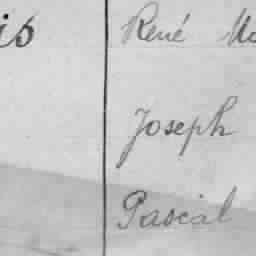 is René
Joseph
Pascal